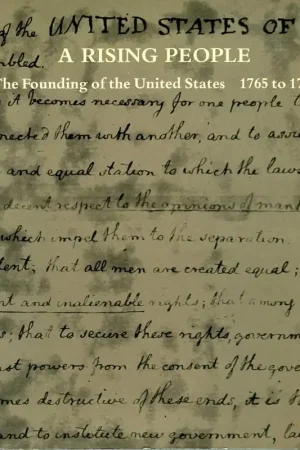 of the UNITED STATES OF
A RISING PEOPLE
mbled.
The Founding of the United States 1765 to 17
A becomes necessary for one people t
nected them with another, and to assu
and equal station to which the laws
decent respect to the opinions of mank
which impel them to the separation.
dent; that all men are created equal;
nt and inalienable rights; that among
s; that to secure these rights, governm
st powers from the consent of the gove
mes destructive of these ends, it is th
and to institute new government, la